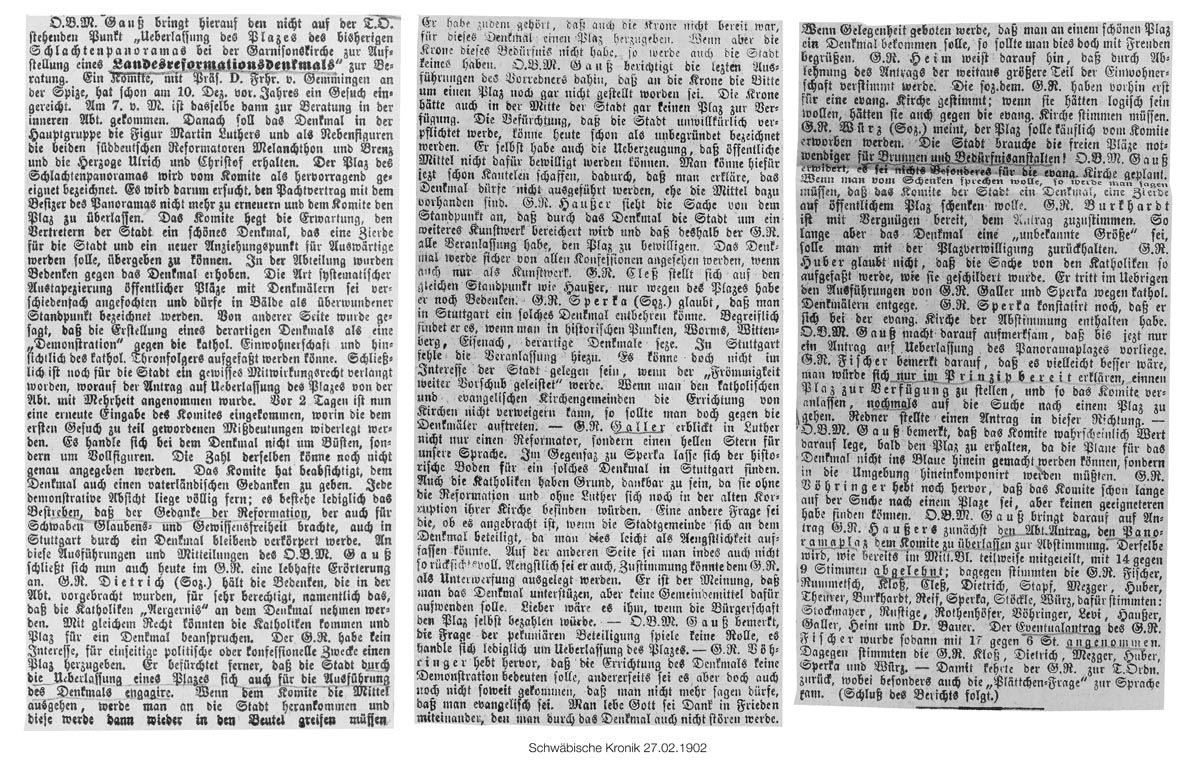 O.B.M. Gauß bringt hierauf den nicht auf der T.O.
stehenden Punkt „Ueberlassung des Plazes des bisherigen
Schlachtenpanoramas bei der Garnisonskirche zur Auf-
stellung eines Landesreformationsdenkmals“ zur Be-
ratung. Ein Komite, mit Präs. D. Frhr. v. Gemmingen an
der Spize, hat schon am 10. Dez. vor. Jahres ein Gesuch ein-
gereicht. Am 7. v. M. ist dasselbe dann zur Beratung in der
inneren Abt. gekommen. Danach soll das Denkmal in der
Hauptgruppe die Figur Martin Luthers und als Nebenfiguren
die beiden süddeutschen Reformatoren Melanchthon und Brenz
und die Herzoge Ulrich und Christof erhalten. Der Plaz des
Schlachtenpanoramas wird vom Komite als hervorragend ge-
eignet bezeichnet. Es wird darum ersucht, den Pachtvertrag mit dem
Besizer des Panoramas nicht mehr zu erneuern und dem Komite den
Plaz zu überlassen. Das Komite hegt die Erwartung, den
Vertretern der Stadt ein schönes Denkmal, das eine Zierde
für die Stadt und ein neuer Anziehungspunkt für Auswärtige
werden solle, übergeben zu können. In der Abteilung wurden
Bedenken gegen das Denkmal erhoben. Die Art systematischer
Austapezierung öffentlicher Pläze mit Denkmälern sei ver-
schiedenfach angefochten und dürfe in Bälde als überwundener
Standpunkt bezeichnet werden. Von anderer Seite wurde ge-
sagt, daß die Erstellung eines derartigen Denkmals als eine
„Demonstration“ gegen die kathol. Einwohnerschaft und hin-
sichtlich des kathol. Thronfolgers aufgefaßt werden könne. Schließ-
lich ist noch für die Stadt ein gewisses Mitwirkungsrecht verlangt
worden, worauf der Antrag auf Ueberlassung des Plazes von der
Abt. mit Mehrheit angenommen wurde. Vor 2 Tagen ist nun
eine erneute Eingabe des Komites eingekommen, worin die dem
ersten Gesuch zu teil gewordenen Mißdeutungen widerlegt wer-
den. Es handle sich bei dem Denkmal nicht um Büsten, son-
dern um Vollfiguren. Die Zahl derselben könne noch nicht
genau angegeben werden. Das Komite hat beabsichtigt, dem
Denkmal auch einen vaterländischen Gedanken zu geben. Jede
demonstrative Absicht liege völlig fern; es bestehe lediglich das
Bestreben, daß der Gedanke der Reformation, der auch für
Schwaben Glaubens- und Gewissensfreiheit brachte, auch in
Stuttgart durch ein Denkmal bleibend verkörpert werde. An
diese Ausführungen und Mitteilungen des O.B.M. Gauß
schließt sich nun auch heute im G.R. eine lebhafte Erörterung
an. G.R. Dietrich (Soz.) hält die Bedenken, die in der
Abt. vorgebracht wurden, für sehr berechtigt, namentlich das,
daß die Katholiken „Aergernis“ an dem Denkmal nehmen wer-
den. Mit gleichem Recht könnten die Katholiken kommen und
Plaz für ein Denkmal beanspruchen. Der G.R. habe kein
Interesse, für einseitige politische oder konfessionelle Zwecke einen
Plaz herzugeben. Er befürchtet ferner, daß die Stadt durch
die Ueberlassung eines Plazes sich auch für die Ausführung
des Denkmals engagire. Wenn dem Komite die Mittel
ausgehen, werde man an die Stadt herankommen und
diese werde dann wieder in den Beutel greifen müssen
Er habe zudem gehört, daß auch die Krone nicht bereit war,
für dieses Denkmal einen Plaz herzugeben. Wenn aber die
Krone dieses Bedürfnis nicht habe, so werde auch die Stadt
keines haben. O.B.M. Gauß berichtigt die lezten Aus-
führungen des Vorredners dahin, daß an die Krone die Bitte
um einen Plaz noch gar nicht gestellt worden sei. Die Krone
hätte auch in der Mitte der Stadt gar keinen Plaz zur Ver-
fügung. Die Befürchtung, daß die Stadt unwillkürlich ver-
pflichtet werde, könne heute schon als unbegründet bezeichnet
werden. Er selbst habe auch die Ueberzeugung, daß öffentliche
Mittel nicht dafür bewilligt werden können. Man könne hiefür
jezt schon Kautelen schaffen, dadurch, daß man erkläre, das
Denkmal dürfe nicht ausgeführt werden, ehe die Mittel dazu
vorhanden sind. G.R. Haußer sieht die Sache von dem
Standpunkt an, daß durch das Denkmal die Stadt um ein
weiteres Kunstwerk bereichert wird und daß deshalb der G.R.
alle Veranlassung habe, den Plaz zu bewilligen. Das Denk-
mal werde sicher von allen Konfessionen angesehen werden, wenn
auch nur als Kunstwerk. G.R. Cleß stellt sich auf den
gleichen Standpunkt wie Haußer, nur wegen des Plazes habe
er noch Bedenken. G.R. Sperka (Soz.) glaubt, daß man
in Stuttgart ein solches Denkmal entbehren könne. Begreiflich
findet er es, wenn man in historischen Punkten, Worms, Witten-
berg, Eisenach, derartige Denkmale seze. In Stuttgart
fehle die Veranlassung hiezu. Es könne doch nicht im
Interesse der Stadt gelegen sein, wenn der „Frömmigkeit
weiter Vorschub geleistet“ werde. Wenn man den katholischen
und evangelischen Kirchengemeinden die Errichtung von
Kirchen nicht verweigern kann, so sollte man doch gegen die
Denkmäler auftreten. — G.R. Galler erblickt in Luther
nicht nur einen Reformator, sondern einen hellen Stern für
unsere Sprache. Im Gegensaz zu Sperka lasse sich der histo-
rische Boden für ein solches Denkmal in Stuttgart finden.
Auch die Katholiken haben Grund, dankbar zu sein, da sie ohne
die Reformation und ohne Luther sich noch in der alten Kor-
ruption ihrer Kirche befinden würden. Eine andere Frage sei
die, ob es angebracht ist, wenn die Stadtgemeinde sich an dem
Denkmal beteiligt, da man dies leicht als Aengstlichkeit auf-
fassen könnte. Auf der anderen Seite sei man indes auch nicht
so rücksichtsvoll. Aengstlich sei er auch, Zustimmung könnte dem G.R.
als Unterwerfung ausgelegt werden. Er ist der Meinung, daß
man das Denkmal unterstüzen, aber keine Gemeindemittel dafür
aufwenden solle. Lieber wäre es ihm, wenn die Bürgerschaft
den Plaz selbst bezahlen würde. — O.B.M. Gauß bemerkt,
die Frage der pekuniären Beteiligung spiele keine Rolle, es
handle sich lediglich um Ueberlassung des Plazes. — G.R. Vöh-
ringer hebt hervor, daß die Errichtung des Denkmals keine
Demonstration bedeuten solle, andererseits sei es aber doch auch
noch nicht soweit gekommen, daß man nicht mehr sagen dürfe,
daß man evangelisch sei. Man lebe Gott sei Dank in Frieden
miteinander, den man durch das Denkmal auch nicht stören werde.
Wenn Gelegenheit geboten werde, daß man an einem schönen Plaz
ein Denkmal bekommen solle, so sollte man dies doch mit Freuden
begrüßen. G.R. Heim weist darauf hin, daß durch Ab-
lehnung des Antrags der weitaus größere Teil der Einwohner-
schaft verstimmt werde. Die soz.dem. G.R. haben vorhin erst
für eine evang. Kirche gestimmt; wenn sie hätten logisch sein
wollen, hätten sie auch gegen die evang. Kirche stimmen müssen.
G.R. Würz (Soz.) meint, der Plaz solle käuflich vom Komite
erworben werden. Die Stadt brauche die freien Pläze not-
wendiger für Brunnen und Bedürfnisanstalten! O.B.M. Gauß
erwidert, es sei nichts Besonderes für die evang. Kirche geplant.
Wenn man vom Schenken sprechen wolle, so werde man sagen
müssen, daß das Komite der Stadt ein Denkmal, eine Zierde
auf öffentlichem Plaz schenken wolle. G.R. Burkhardt
ist mit Vergnügen bereit, dem Antrag zuzustimmen. So
lange aber das Denkmal eine „unbekannte Größe“ sei,
solle man mit der Plazverwilligung zurückhalten. G.R.
Huber glaubt nicht, daß die Sache von den Katholiken so
aufgefaßt werde, wie sie geschildert wurde. Er tritt im Uebrigen
den Ausführungen von G.R. Galler und Sperka wegen kathol.
Denkmälern entgege. G.R. Sperka konstatirt noch, daß er
sich bei der evang. Kirche der Abstimmung enthalten habe.
O.B.M. Gauß macht darauf aufmerksam, daß bis jezt nur
ein Antrag auf Ueberlassung des Panoramaplazes vorliege.
G.R. Fischer bemerkt darauf, daß es vielleicht besser wäre,
man würde sich nur im Prinzip bereit erklären, einnen
Plaz zur Verfügung zu stellen, und so das Komite ver-
anlassen, nochmals auf die Suche nach einem Plaz zu
gehen. Redner stellte einen Antrag in dieser Richtung. —
O.B.M. Gauß bemerkt, daß das Komite wahrscheinlich Wert
darauf lege, bald den Plaz zu erhalten, da die Plane für das
Denkmal nicht ins Blaue hinein gemacht werden können, sondern
in die Umgebung hineinkomponirt werden müßten. G.R.
Vöhringer hebt noch hervor, daß das Komite schon lange
auf der Suche nach einem Plaze sei, aber keinen geeigneteren
habe finden können. O.B.M. Gauß bringt darauf auf An-
trag G.R. Haußers zunächst den Abt.Antrag, den Pano-
ramaplaz dem Komite zu überlassen zur Abstimmung. Derselbe
wird, wie bereits im Mitt.Bl. teilweise mitgeteilt, mit 14 gegen
9 Stimmen abgelehnt; dagegen stimmten die G.R. Fischer,
Rummetsch, Kloß, Cleß, Dietrich, Stapf, Mezger, Huber,
Theurer, Burkhardt, Reif, Sperka, Stöckle, Würz, dafür stimmten:
Stockmayer, Rustige, Rothenhöfer, Vöhringer, Levi, Haußer,
Galler, Heim und Dr. Bauer. Der Eventualantrag des G.R.
Fischer wurde sodann mit 17 gegen 6 St. angenommen.
Dagegen stimmten die G.R. Kloß, Dietrich, Mezger, Huber,
Sperka und Würz. — Damit kehrte der G.R. zur T.Ordn.
zurück, wobei besonders auch die „Plättchen-Frage“ zur Sprache
kam. (Schluß des Berichts folgt.)
Schwäbische Kronik 27.02.1902